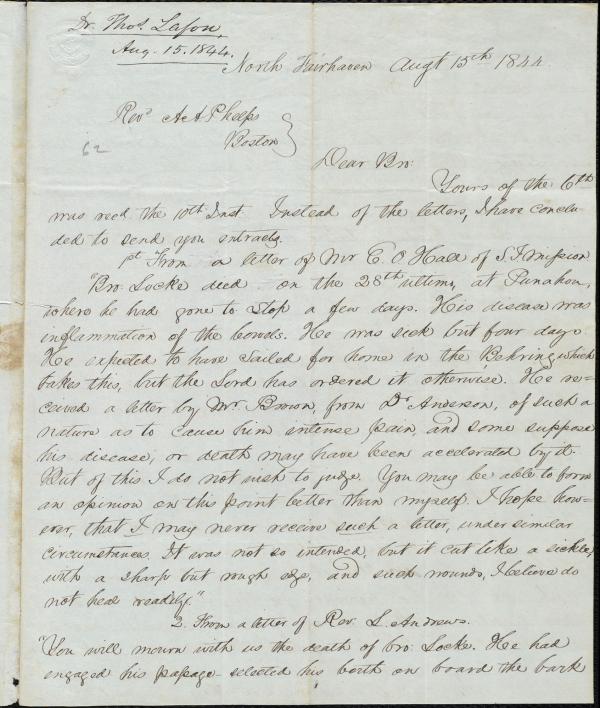 Dr. Thos. Lafon,
Aug. 15. 1844.
North Fairhaven Augt 15th 1844
Revd A A Phelps
Boston
62
Dear Bro:
Yours of the 6th
was recd the 10th Inst. Instead of the letters, I have conclu-
ded to send you extracts.
1st From a letter of Mr E. O. Hall of S. I mission
"Bro. Locke died on the 28th ultimo, at Punahou,
where he had gone to stop a few days. His disease was
inflammation of the bowels. He was sick but four days
He expected to have sailed for home in the Behring which
takes this, but the Lord has ordered it otherwise. He re=
ceived a letter by Mr. Brown, from Dr Anderson, of such a
nature as to cause him intense pain, and some suppose
his disease, or death may have been accelerated by it.
But of this I do not wish to judge. You may be able to form
an opinion on this point better than myself. I hope how-
ever, that I may never receive such a letter, under similar
circumstances. It was not so intended, but it cut like a sickle,
with a sharp but rough edge, and such wounds, I believe do
not heal readily."
2. From a letter of Rev. L. Andrews.
"You will mourn with us the death of bro. Locke. He had
engaged his passage - selected his birth on board the bark